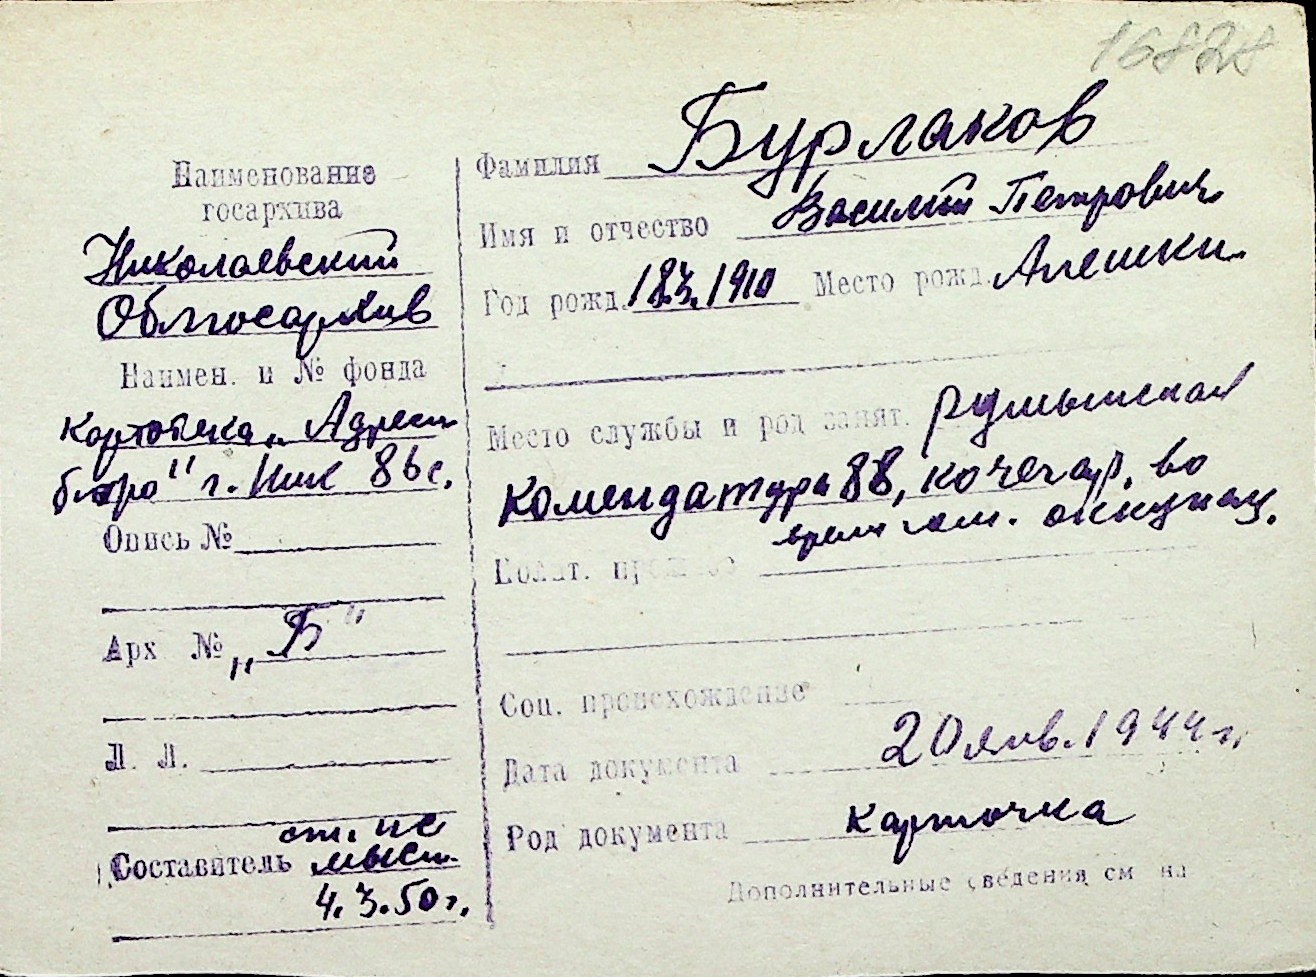 16828
Наименование
госархива
Николаевский
Облгосархив
Наимен. и № фонда
картотека „Адресн
бюро" г. Ник 86с.
Опись №
Арх № „Б"
Л. Л.
Составитель
4.3.50г.
Фамилия Бурлаков
Имя и отчество Василий Петрович
Год рожд. 18.3.1910 Место рожд. Алешки
Место службы и род занят. румынская
комендатура 88, кочегар, во
время оккупац.
Полит. прошлое
Соц. происхождение
Дата документа 20 янв. 1944 г.
Род документа карточка
Дополнительные сведения см на